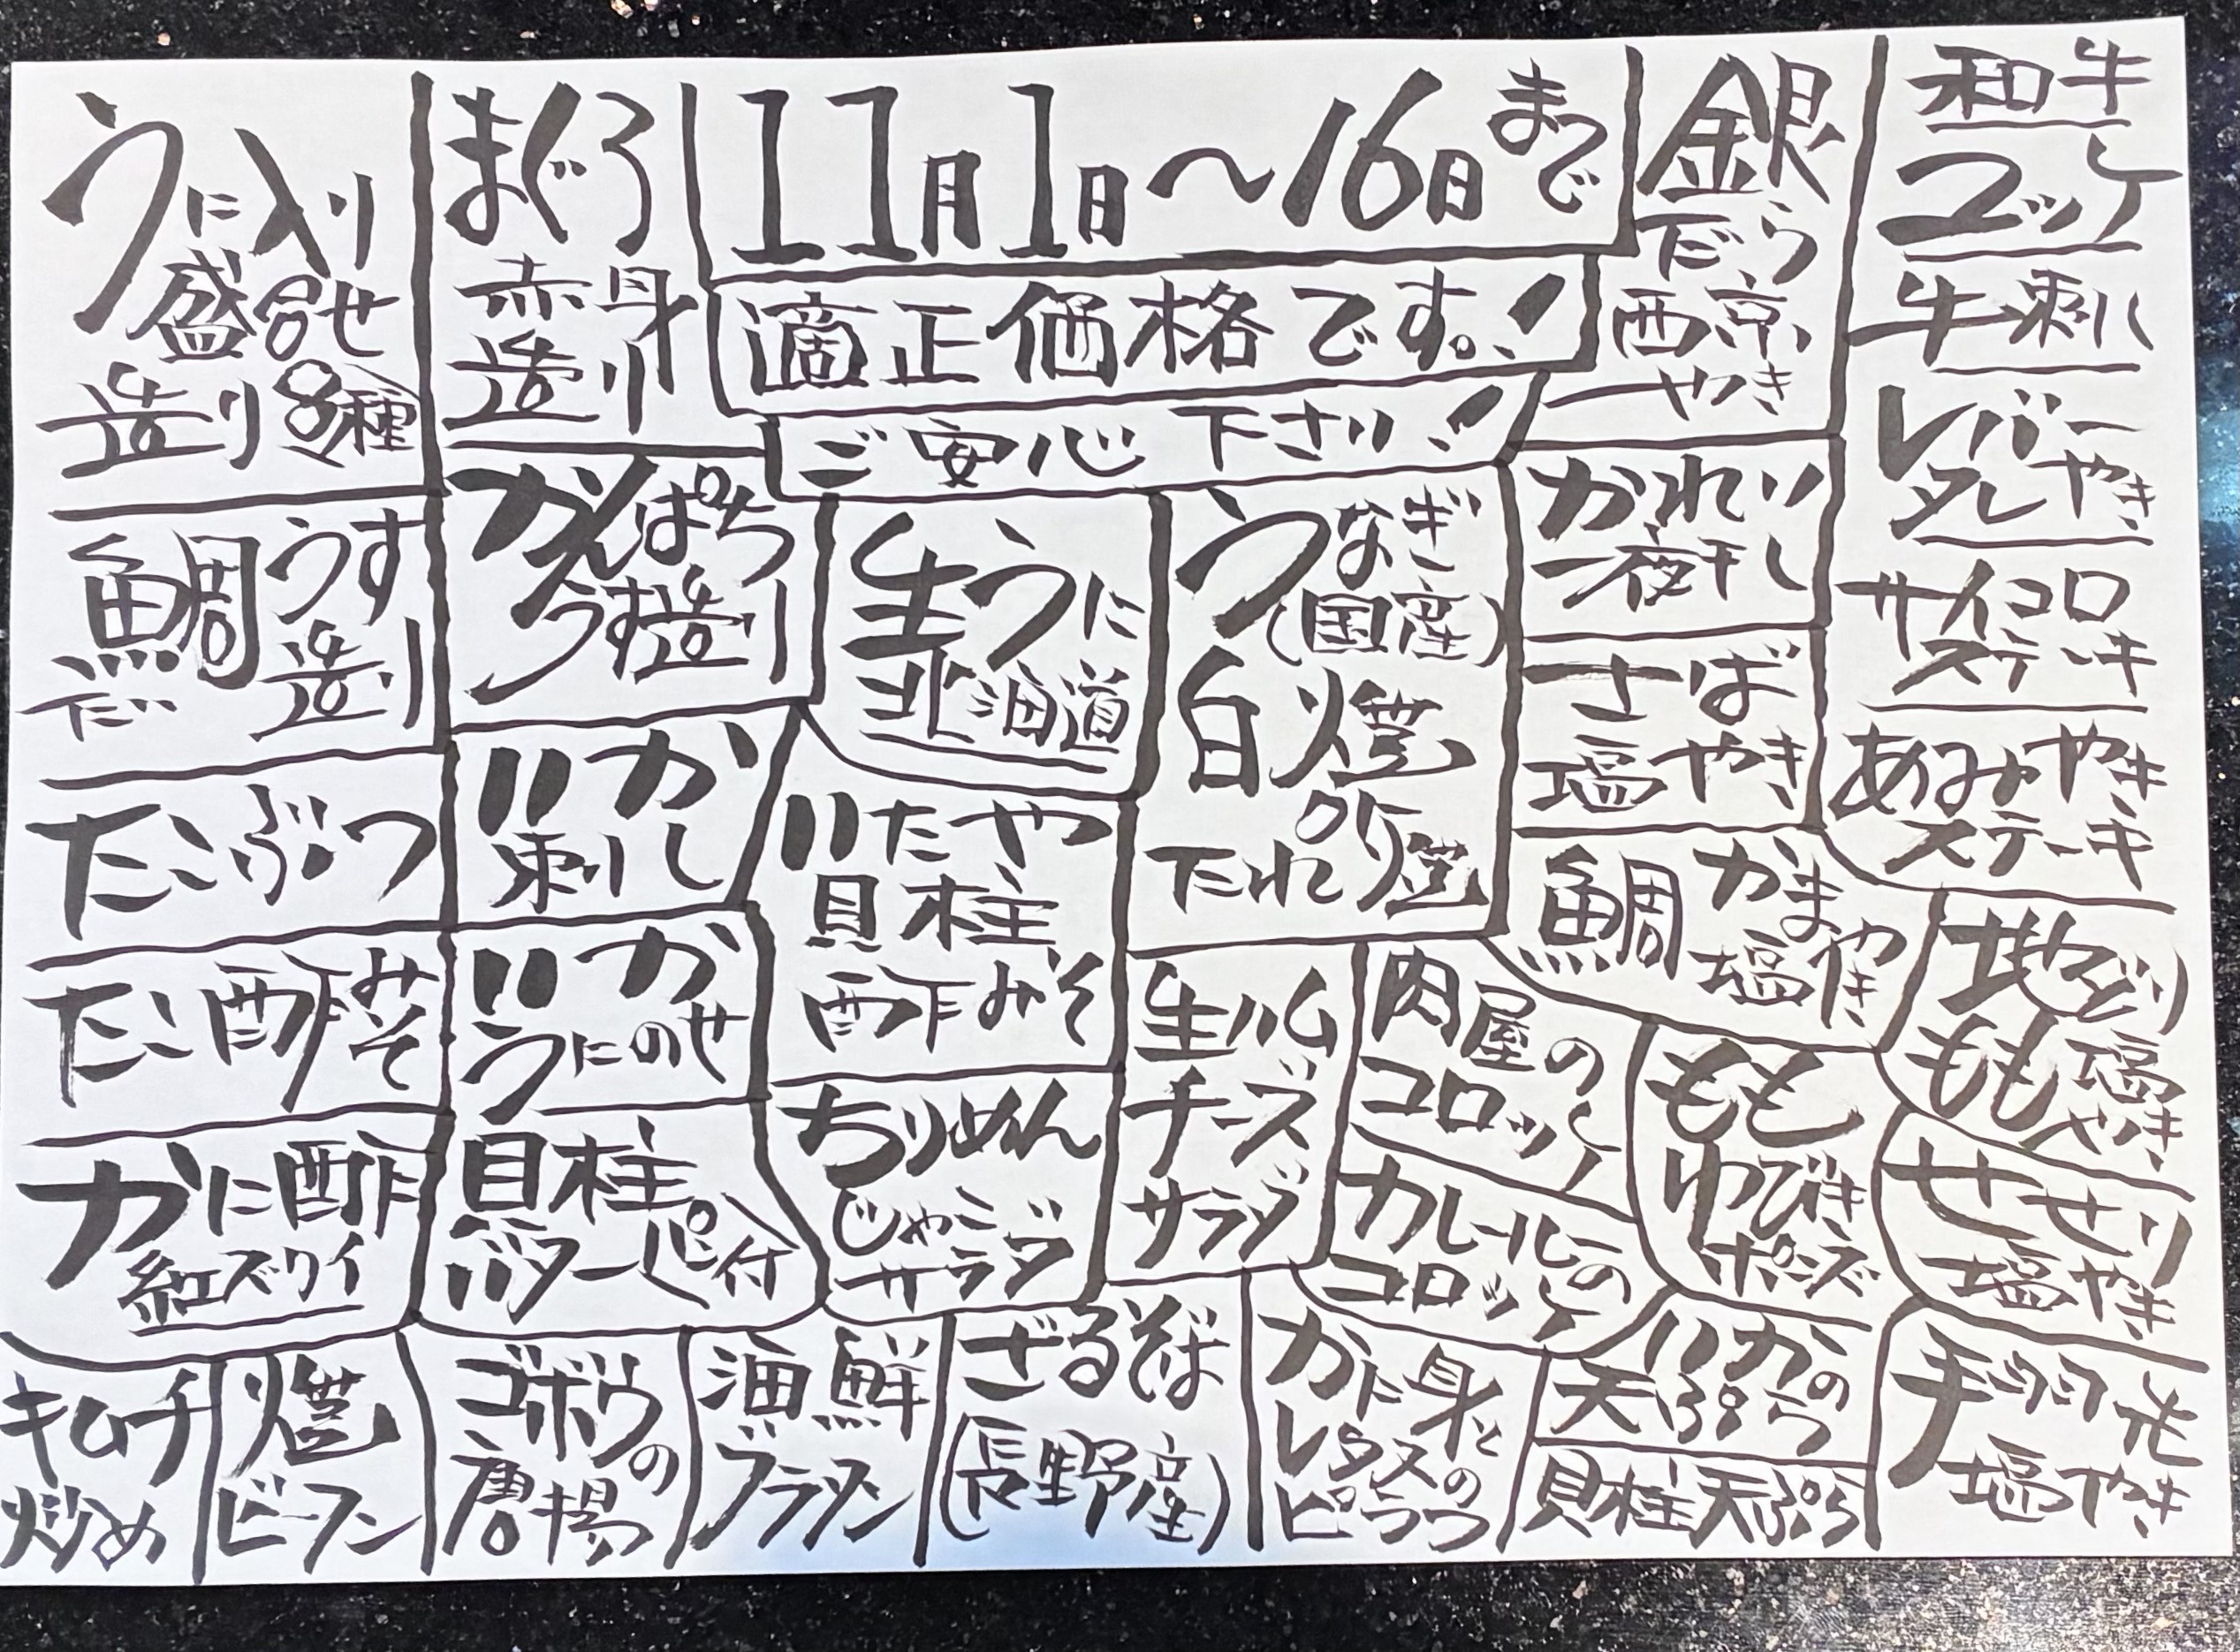 うに入り
盛合せ
造り8種
まぐろ
赤身
造り
11月1日〜16日まで
適正価格です。!
ご安心下さい!
銀
だら
西京
やき
和牛
コツ
牛刺し
レバー
タレやき
サイコロ
ステーキ
あみやき
ステーキ
鯛うす
造り
かんぱち
うす造り
生うに
北海道
うなぎ
(国産)
白焼
たれ
かれい
一夜干し
さば
塩やき
たこぶつ
いか
刺し
いたや
貝柱
酢みそ
鯛かま
塩やき
地どり
もも塩
やき
たこ酢みそ
いか
うにのせ
生ハム
チーズ
サラダ
肉屋の
コロッケ
もも
ゆびき
ポンズ
かに酢
紅ズワイ
貝柱
バターパン付
ちりめん
じゃこ
サラダ
カレールーの
コロッケ
せせり
塩やき
キムチ
炒め
焼
ビーフン
ゴボウの
唐揚
海鮮
グラタン
ざるそば
(長野産)
かに身と
レタスの
ピラフ
いかの
天ぷら
貝柱天ぷら
手羽先
塩やき